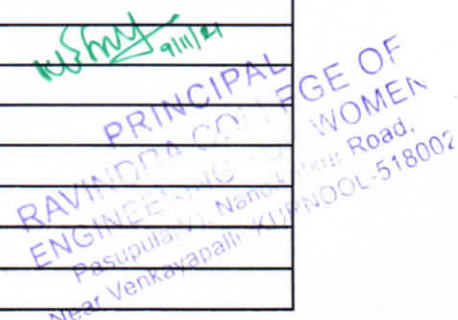 9/11/21
PRINCIPAL
RAVINDRA COLLEGE OF
ENGINEERING FOR WOMEN
Pasupula, Nandikotkur Road,
Near Venkayapalli, KURNOOL-518002